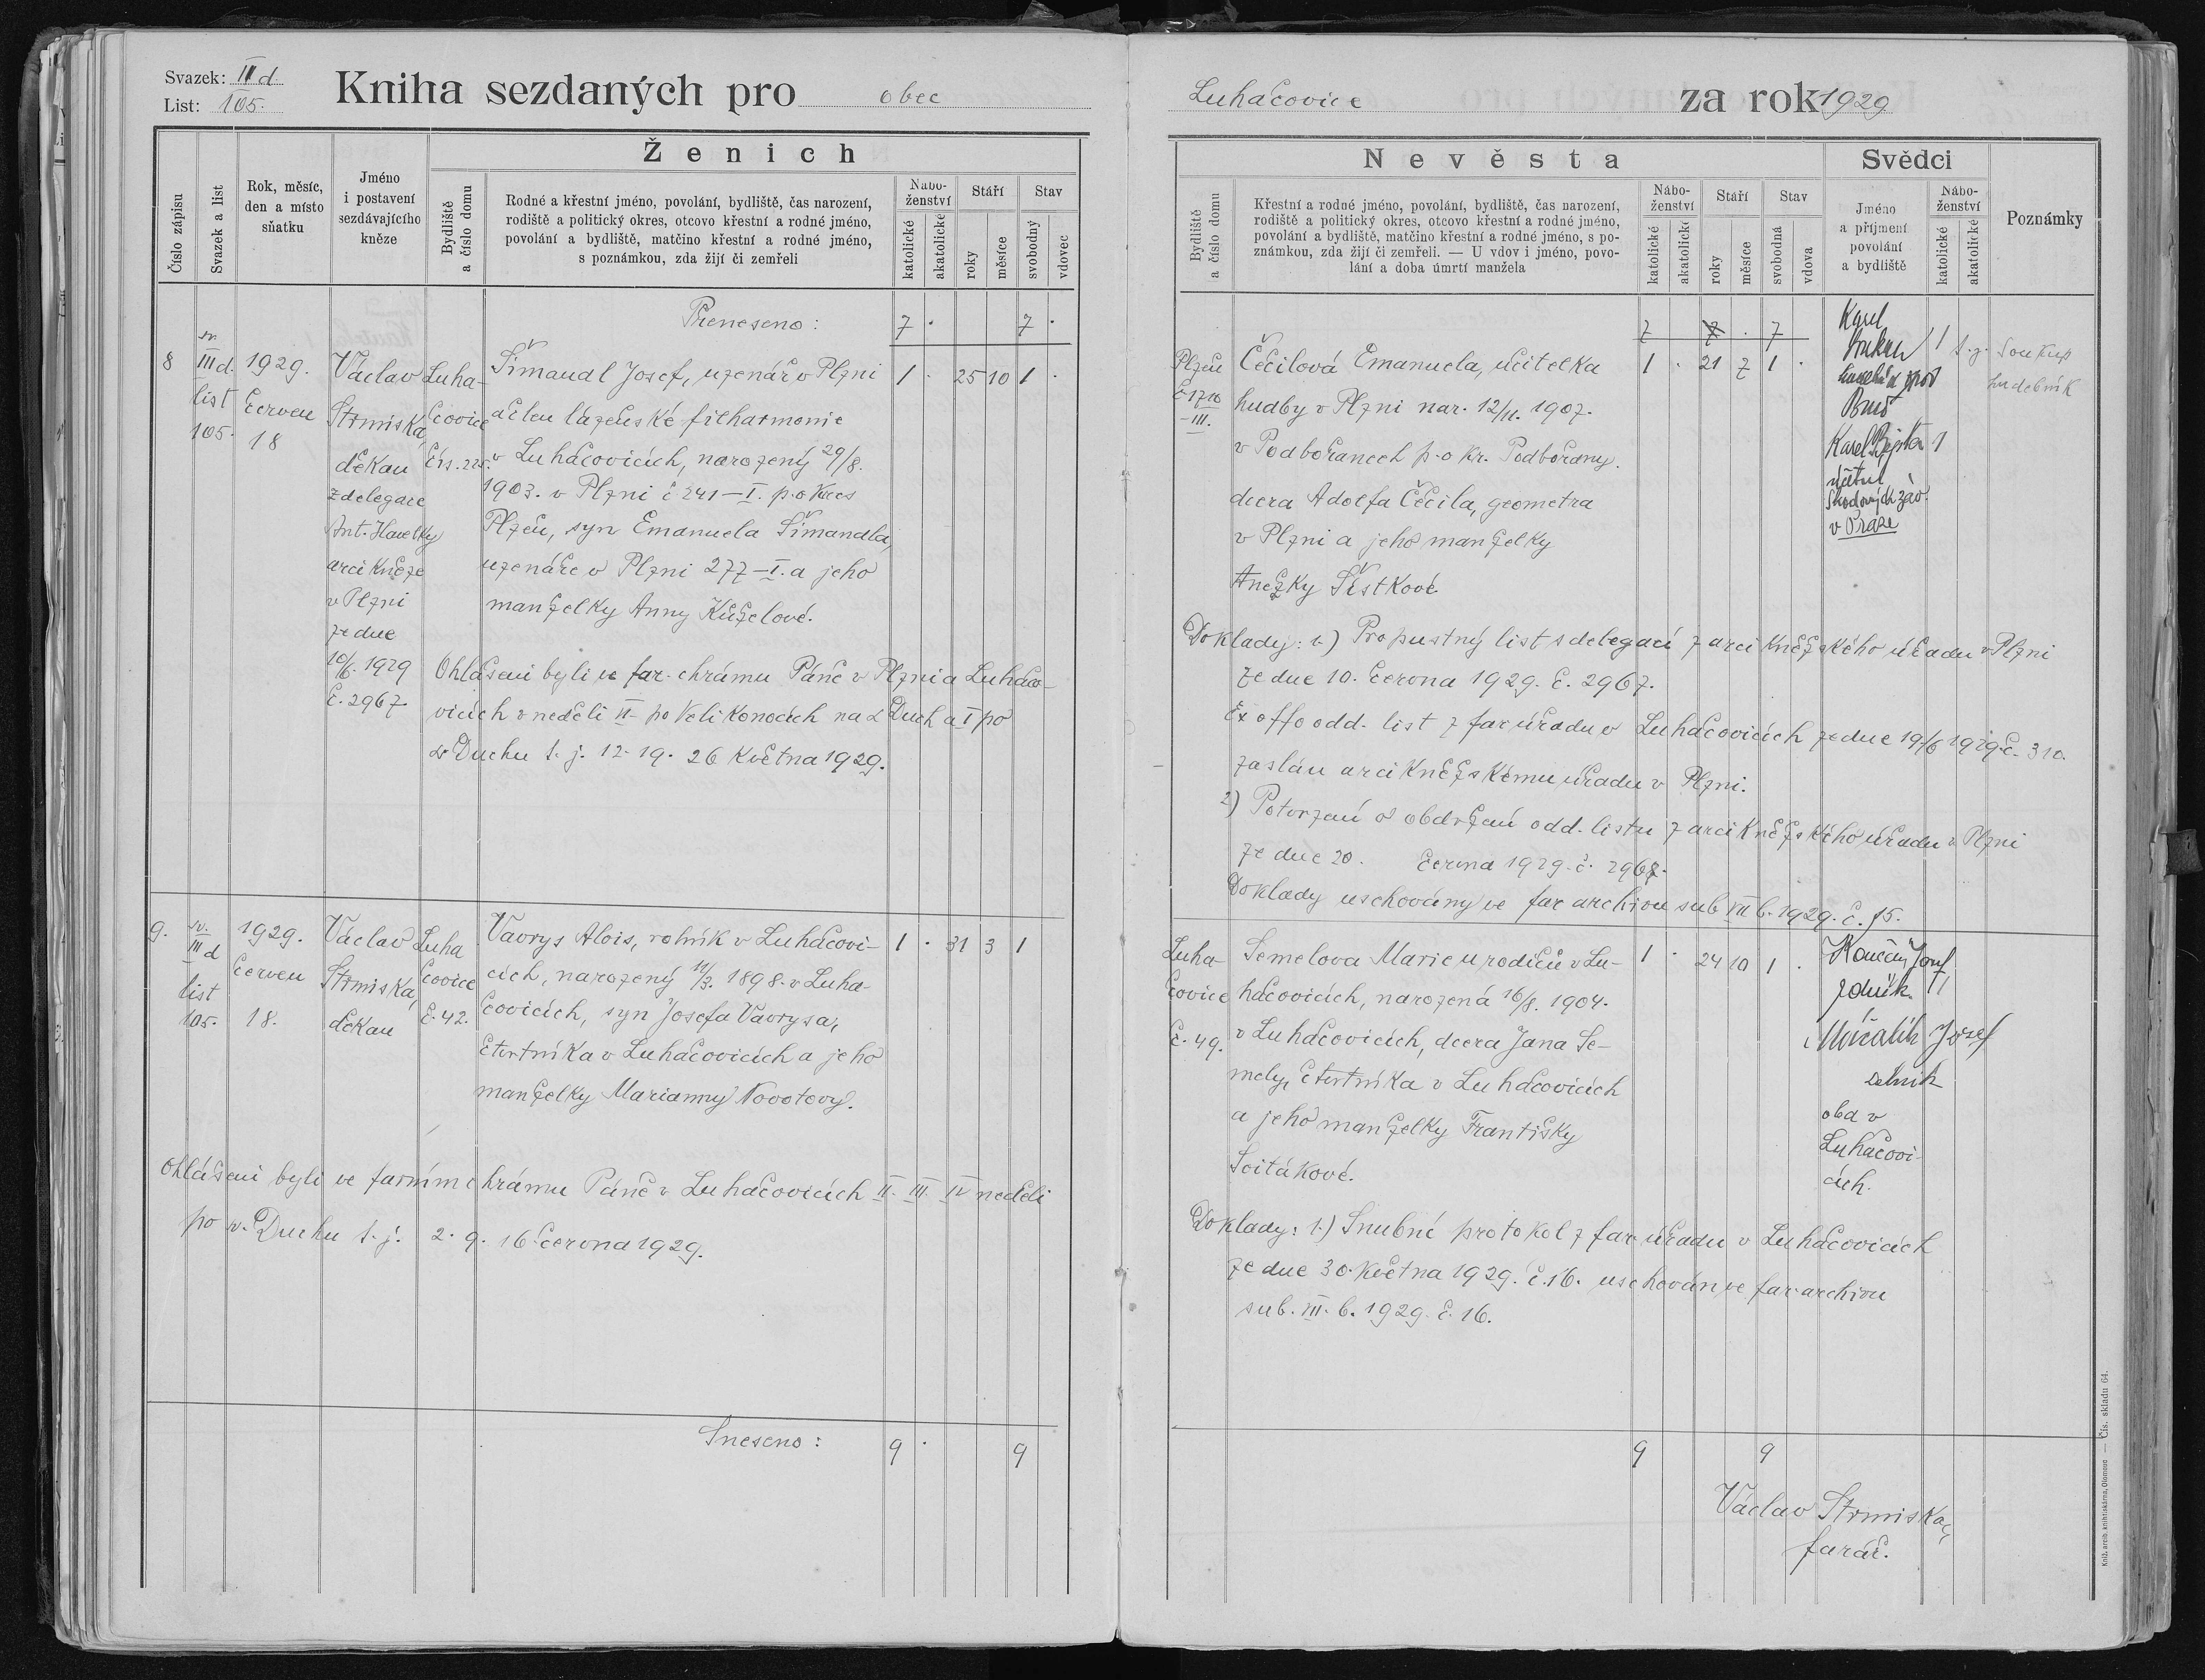 Svazek: III d.
List: 105.
Kniha sezdaných pro obec
Číslo zápisu
Svazek a list
Rok, měsíc,
den a místo
sňatku
Jméno
i postavení
sezdávajícího
kněze
Ženich
Bydliště
a číslo domu
Rodné a křestní jméno, povolání, bydliště, čas narození,
rodiště a politický okres, otcovo křestní a rodné jméno,
povolání a bydliště, matčino křestní a rodné jméno,
s poznámkou, zda žijí či zemřeli
Nábo-
ženství
katolické
akatolické
Stáří
roky
měsíce
Stav
svobodný
vdovec
Přeneseno: 7 . 7 .
8
sv.
III d.
list
105.
1929.
červen
18
Václav
Strmiska,
děkan
z delegace
Ant. Havelky
arcikněze
v Plzni
ze dne
10/6. 1929
č. 2967
Luha-
čovice
čís. 225.
Šimandl Josef, uzenář v Plzni
a člen lázeňské filharmonie
v Luhačovicích, narozený 29/8.
1903. v Plzni č 241–I. p. okres
Plzeň, syn Emanuela Šimandla,
uzenáře v Plzni 277–I. a jeho
manželky Anny Kůželové.
1 . 25 10 1 .
Ohlášeni byli ve far. chrámu Páně v Plzni a Luhačo-
vicích v neděli VI. po Velikonocích na sv Duch a I po
sv Duchu t. j. 12. 19. 26 května 1929.
9.
sv.
III d
list
105.
1929.
červen
18.
Václav
Strmiska,
děkan
Luha
čovice
č. 42.
Vavrys Alois, rolník v Luhačovi-
cích, narozený 11/3. 1898. v Luha-
čovicích, syn Josefa Vavrysa,
čtvrtníka v Luhačovicích a jeho
manželky Marianny Novotovy.
1 . 31 3 1
Ohlášeni byli ve farním chrámu Páně v Luhačovicích II. III. IV neděli
po sv. Duchu t. j. 2. 9. 16 června 1929.
Sneseno: 9 . 9
Luhačovice za rok 1929
Nevěsta
Bydliště
a číslo domu
Křestní a rodné jméno, povolání, bydliště, čas narození,
rodiště a politický okres, otcovo křestní a rodné jméno,
povolání a bydliště, matčino křestní a rodné jméno, s po-
známkou, zda žijí či zemřeli. — U vdov i jméno, povo-
lání a doba úmrtí manžela
Nábo-
ženství
katolické
akatolické
Stáří
roky
měsíce
Stav
svobodná
vdova
Svědci
Jméno
a příjmení
povolání
a bydliště
Nábo-
ženství
katolické
akatolické
Poznámky
7 7 . 7
Plzeň
č 1710
–III.
Čečilová Emanuela, učitelka
hudby v Plzni nar. 12/11. 1907.
v Podbořanech p. o kr. Podbořany.
dcera Adolfa Čečila, geometra
v Plzni a jeho manželky
Anežky Šístkové.
1 . 21 7 1 .
Karel
Soukup 1
Brno
t. j. Soukup
hudebník
Karel 1
účetní
Škodových záv.
v Praze
Doklady: 1.) Propustný list s delegací z arcikněžského úřadu v Plzni
ze dne 10. června 1929. č. 2967.
Ex offo odd. list z far úřadu v Luhačovicích ze dne 19/6 1929 č. 310.
zaslán arcikněžskému úřadu v Plzni.
2) Potvrzení o obdržení odd. listu z arcikněžského úřadu v Plzni
ze dne 20. června 1929. č. 2967.
Doklady uschovány ve far archivu sub VII b. 1929. č. 15.
Luha-
čovice
č. 49.
Semelova Marie u rodičů v Lu-
hačovicích, narozená 16/8. 1904.
v Luhačovicích, dcera Jana Se-
mely, čtvrtníka v Luhačovicích
a jeho manželky Františky
Svitákové.
1 . 24 10 1 .
Josef
zedník. 1
Josef
dělník
oba v
Luhačovi-
cích.
Doklady: 1.) Snubní protokol z far úřadu v Luhačovicích
ze dne 30. května 1929. č. 16. uschován ve far. archivu
sub. VII. b. 1929. č. 16.
9 9
Václav Strmiska,
farář.
Kniž. arcib. knihtiskárna, Olomouc — Čís. skladu 64.